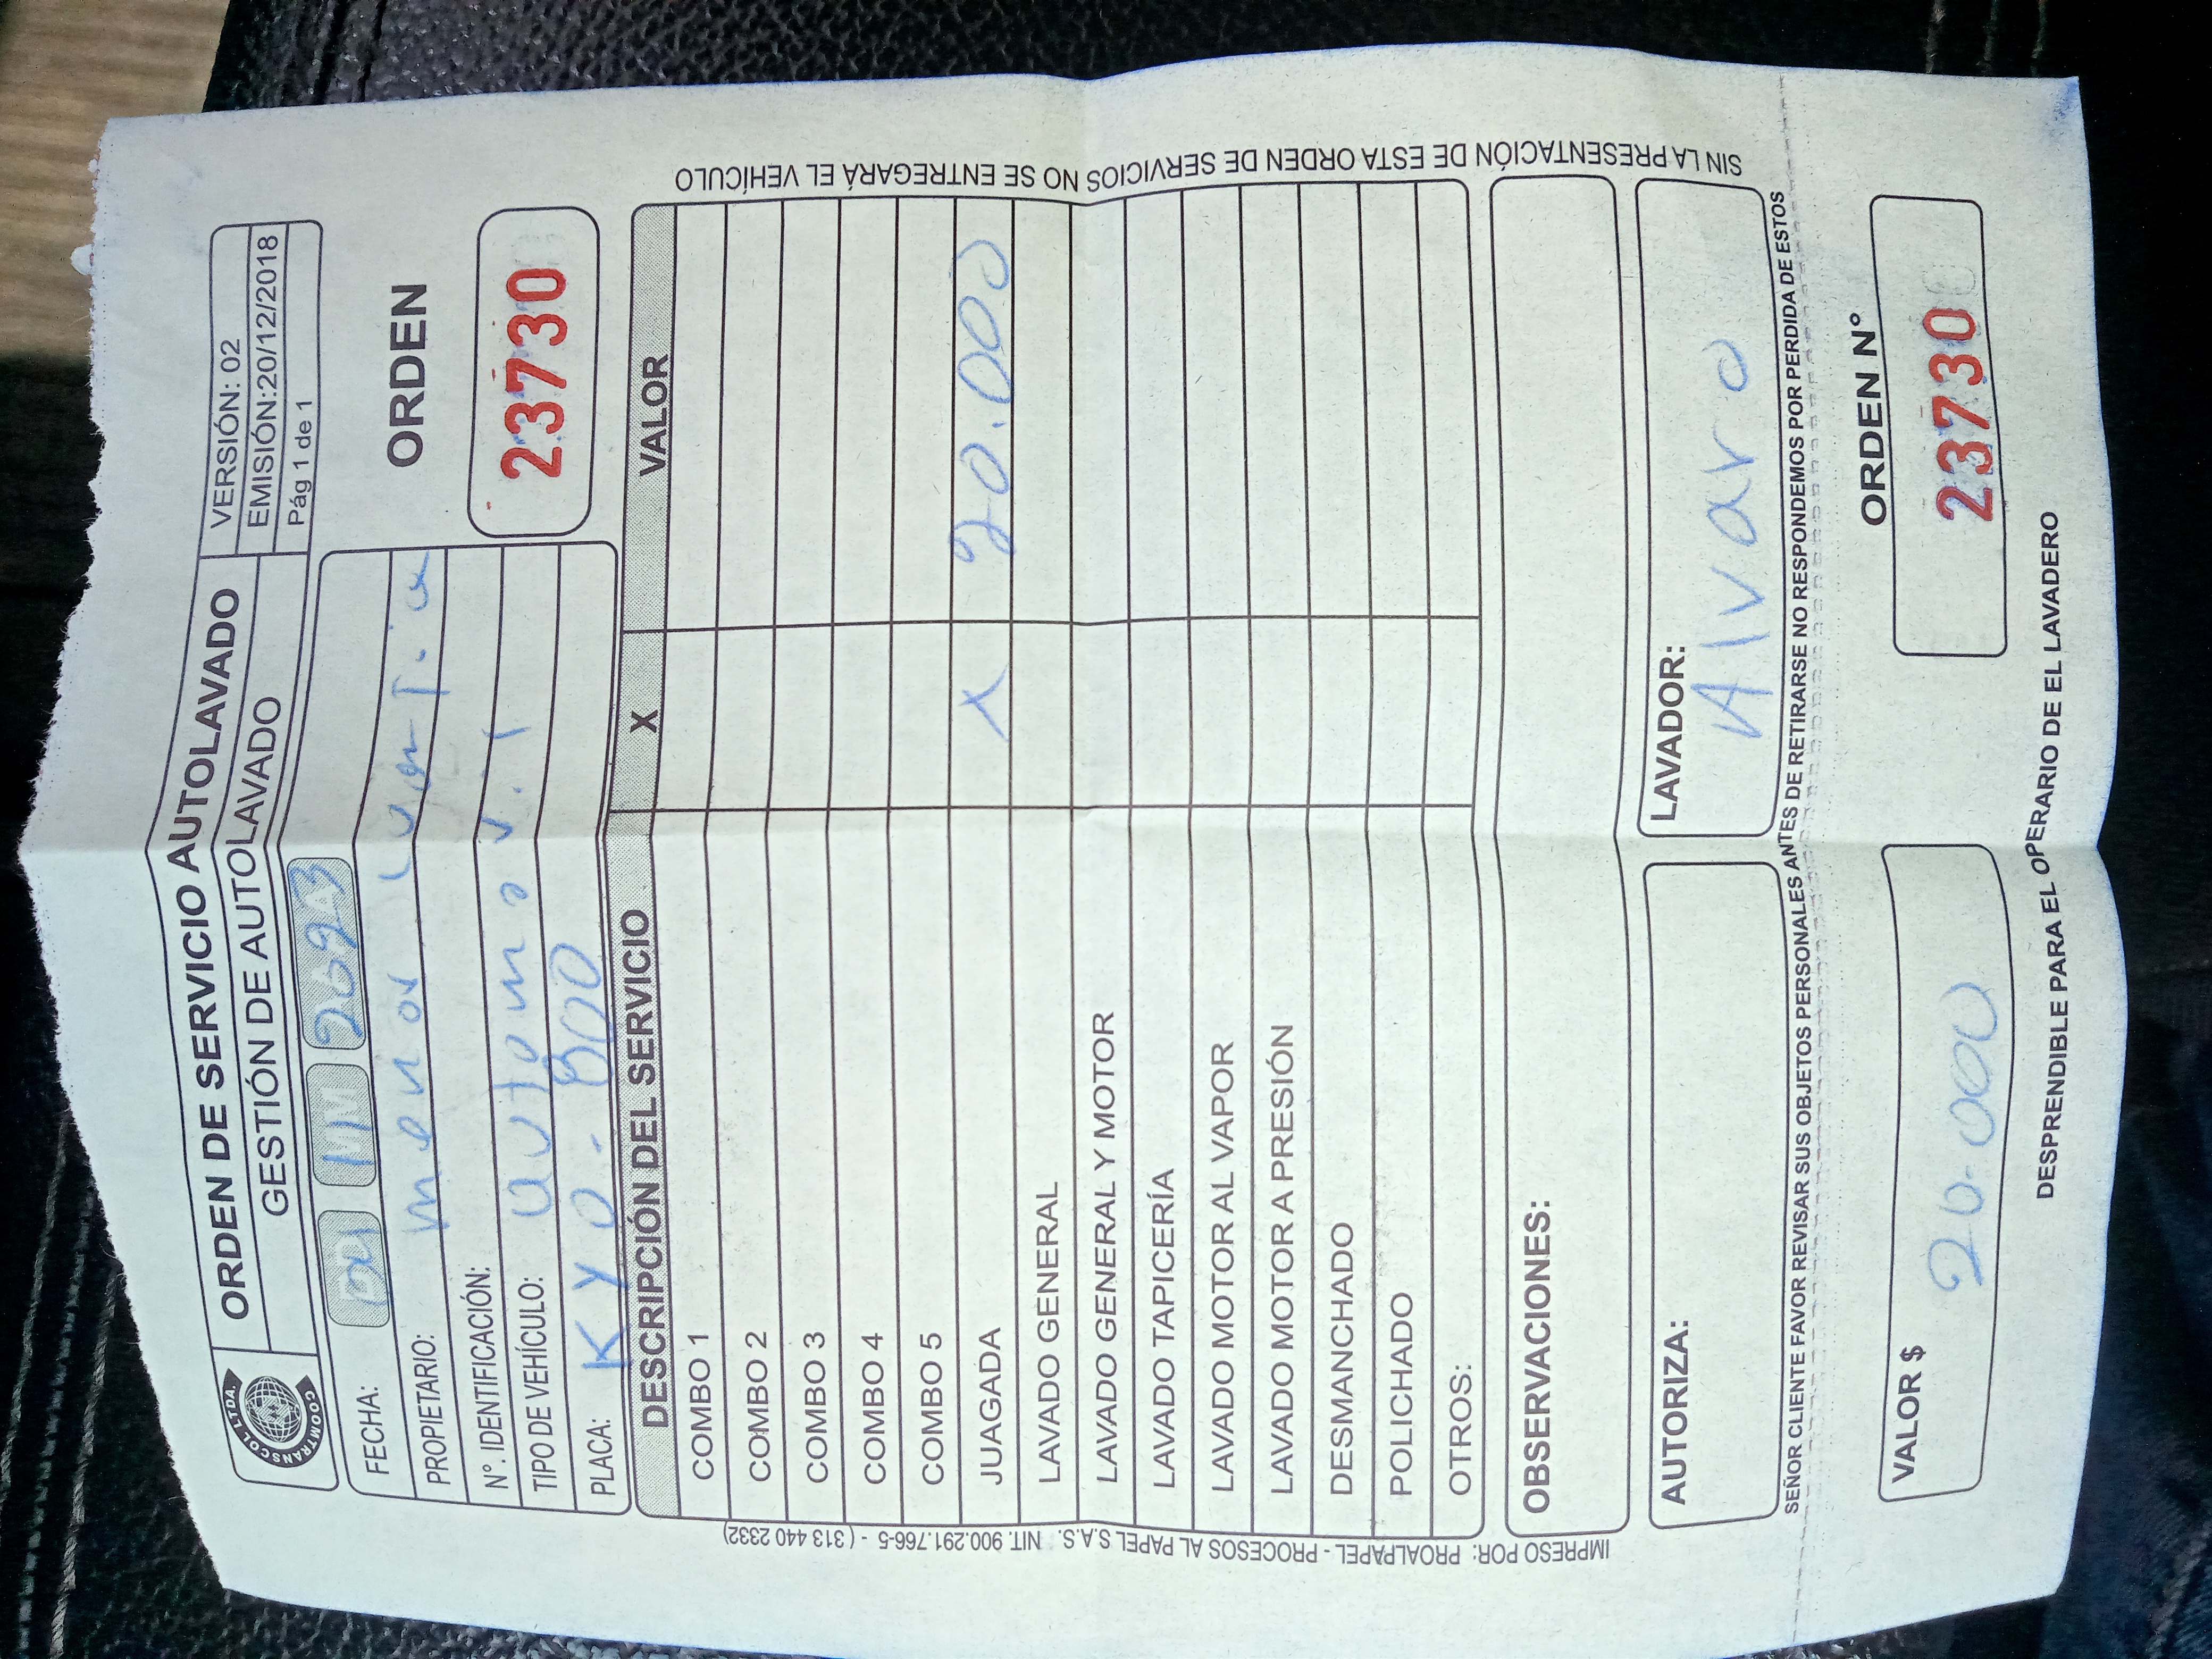 COOMTRANSCOL LTDA.
ORDEN DE SERVICIO AUTOLAVADO
GESTIÓN DE AUTOLAVADO
VERSIÓN: 02
EMISIÓN:20/12/2018
Pág 1 de 1
FECHA: 2023
PROPIETARIO:
Nº. IDENTIFICACIÓN:
TIPO DE VEHÍCULO: automovil
PLACA: KYO-800
ORDEN
23730
DESCRIPCIÓN DEL SERVICIO X VALOR
COMBO 1
COMBO 2
COMBO 3
COMBO 4
COMBO 5
JUAGADA X 20.000
LAVADO GENERAL
LAVADO GENERAL Y MOTOR
LAVADO TAPICERÍA
LAVADO MOTOR AL VAPOR
LAVADO MOTOR A PRESIÓN
DESMANCHADO
POLICHADO
OTROS:
OBSERVACIONES:
AUTORIZA:
LAVADOR: Alvaro
SEÑOR CLIENTE FAVOR REVISAR SUS OBJETOS PERSONALES ANTES DE RETIRARSE NO RESPONDEMOS POR PERDIDA DE ESTOS
VALOR $ 20.000
ORDEN Nº
23730
DESPRENDIBLE PARA EL OPERARIO DE EL LAVADERO
IMPRESO POR: PROALPAPEL - PROCESOS AL PAPEL S.A.S. NIT. 900.291.766-5 - ( 313 440 2332)
SIN LA PRESENTACIÓN DE ESTA ORDEN DE SERVICIOS NO SE ENTREGARÁ EL VEHÍCULO